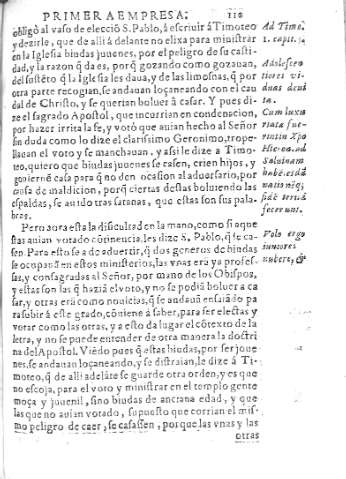 PRIMERA EMPRESA.
110
obligò al vaso de elecciõ S. Pablo, à escriuir à Timoteo
y dezirle, que de alli à delante no elixa para ministrar
en la Iglesia biudas jouenes, por el peligro de su casti-
dad, y la razon q̃ da es, porq̃ gozando como gozauan,
del sustẽto q̃ la Iglesia les daua, y de las limosnas, q̃ por
otra parte recogian, se andauan loçaneando con el cau
dal de Christo, y se querian boluer à casar. Y pues di-
ze el sagrado Apostol, que incurrian en condenacion,
por hazer irrita la fe, y votò que auian hecho al Señor
sin duda como lo dize el clarissimo Geronimo, trope-
llauan el voto y se manchauan, y assi le dize a Timo-
teo, quiero que biudas juuenes se casen, crien hijos, y
gouiernẽ casa para q̃ no den ocasion al aduersario, por
causa de maldicion, porq̃ ciertas destas boluiendo las
espaldas, se an ido tras satanas, que estas son sus pala-
bras.
Pero aura esta la dificultad en la mano, como si aque
stas auian votado cõtinencia, les dize S. Pablo, q̃ se ca-
sen. Para esto se a de aduertir, q̃ dos generos de biudas
se ocupauã en estos ministerios, las vnas erã ya profes-
sas, y consagradas al Señor, por mano de los Obispos,
y estas son las q̃ haziã el voto, y no se podiã boluer a ca
sar, y otras erã como nouicias, q̃ se andauã ensaiãdo pa
ra subir à este grado, cõuiene à saber, para ser electas y
votar como las otras, y a esto da lugar el cõtexto de la
letra, y no se puede entender de otra manera la doctri
na del Apostol. Viẽdo pues q̃ estas biudas, por ser joue
nes, se andauan loçaneando, y se distraian, le dize à Ti-
moteo, q̃ de alli adelãte se guarde otra orden, y es que
no escoja, para el voto y ministrar en el templo gente
moça y juuenil, sino biudas de anciana edad, y que
las que no auian votado, supuesto que corrian el mis-
mo peligro de caer, se casassen, porque las vnas y las
otras
Ad Timo.
1. capit. 5.
Adolescẽ
tiores vi-
duas deui
ta.
Cum luxu
riatæ fue-
rint in Xpo
habẽt
fidẽ
fecerunt.
Volo ergo
iuniores
nubere, &